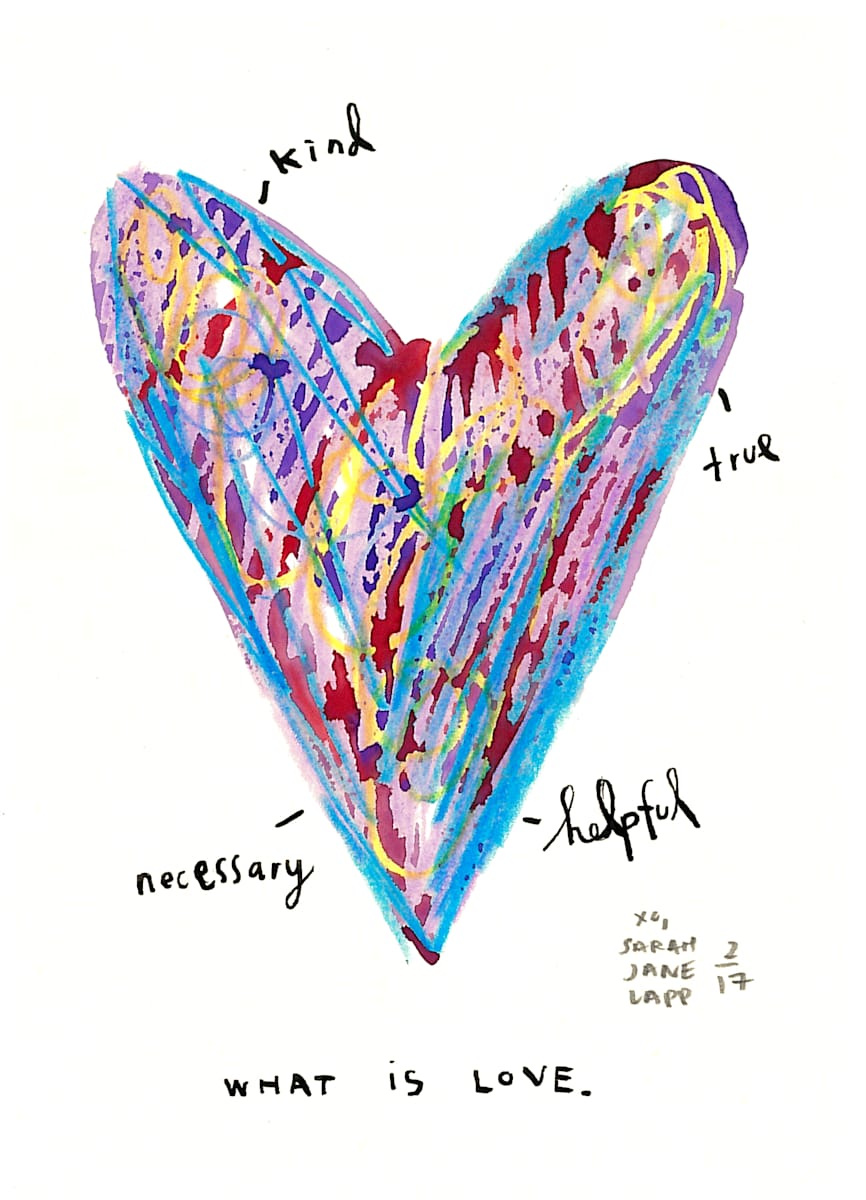 kind
true
helpful
necessary
xo,
SARAH
JANE
LAPP
2/17
WHAT iS LOVE.